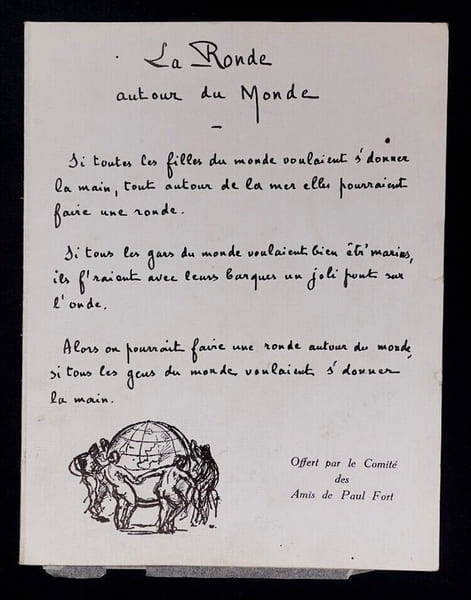 La Ronde
autour du Monde
Si toutes les filles du monde voulaient s'donner
la main, tout autour de la mer elles pourraient
faire une ronde.
Si tous les gars du monde voulaient bien êtr' marins,
ils f'raient avec leurs barques un joli pont sur
l'onde.
Alors on pourrait faire une ronde autour du monde,
si tous les gens du monde voulaient s'donner
la main.
Offert par le Comité
des
Amis de Paul Fort